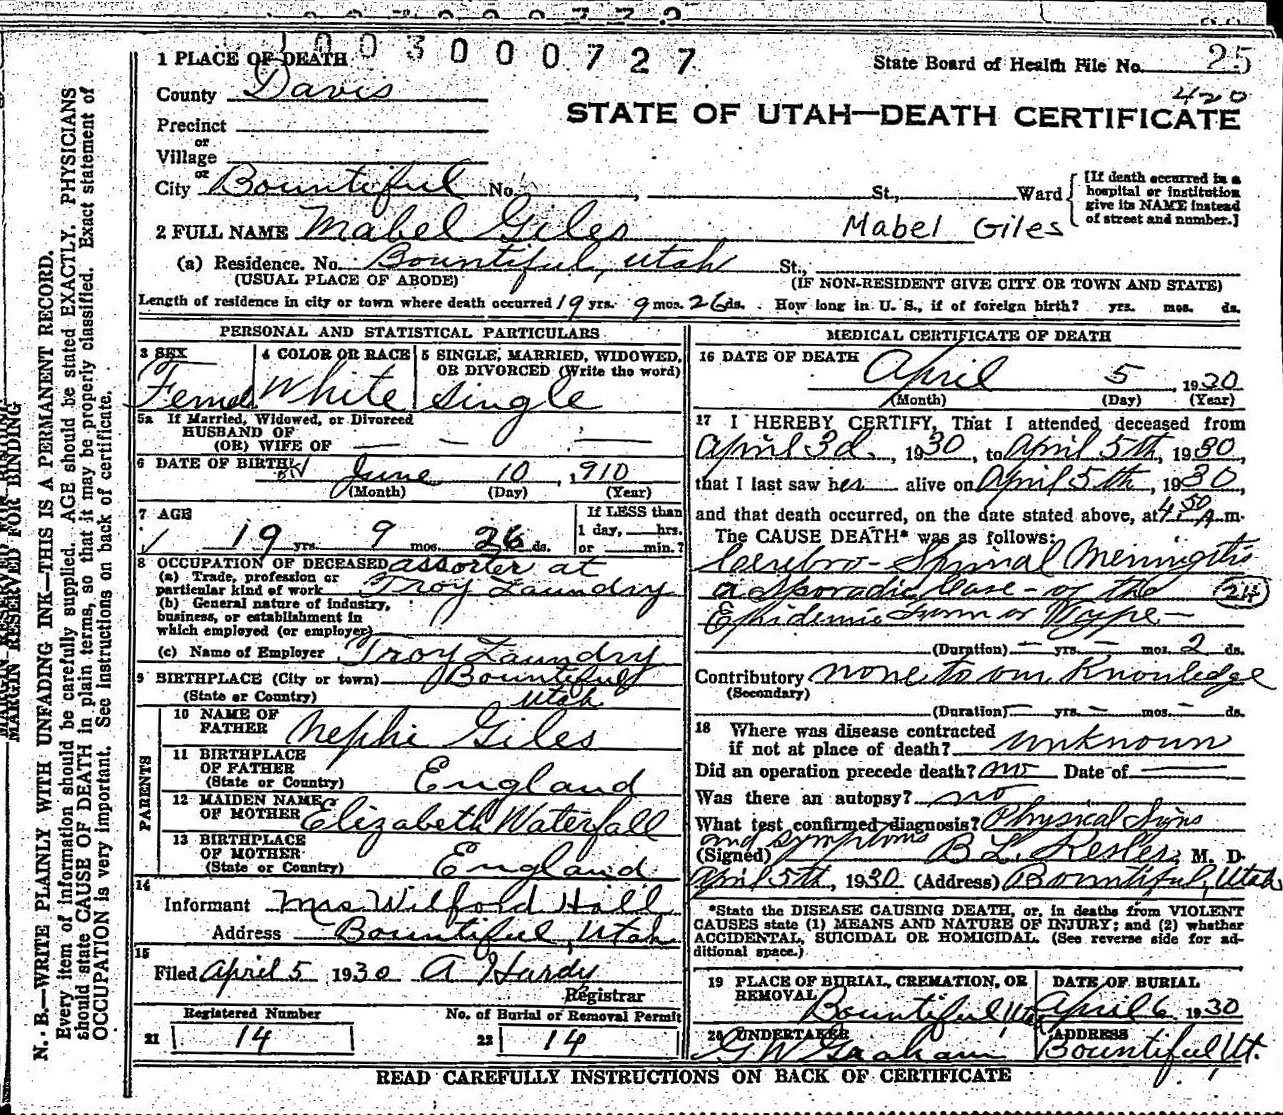 1003000727
1 PLACE OF DEATH
State Board of Health File No. 25
420
County Davis
STATE OF UTAH—DEATH CERTIFICATE
Precinct
or
Village
or
City Bountiful No. , St., Ward
[If death occurred in a hospital or institution give its NAME instead of street and number.]
2 FULL NAME Mabel Giles
Mabel Giles
(a) Residence. No. Bountiful, Utah St.,
(USUAL PLACE OF ABODE) (IF NON-RESIDENT GIVE CITY OR TOWN AND STATE)
Length of residence in city or town where death occurred 19 yrs. 9 mos. 26 ds. How long in U. S., if of foreign birth? yrs. mos. ds.
PERSONAL AND STATISTICAL PARTICULARS
3 SEX
Femal
4 COLOR OR RACE
White
5 SINGLE, MARRIED, WIDOWED, OR DIVORCED (Write the word)
Single
5a If Married, Widowed, or Divorced
HUSBAND OF
(OR) WIFE OF — — —
6 DATE OF BIRTH June 10, 1910
(Month) (Day) (Year)
7 AGE
19 yrs. 9 mos. 26 ds.
If LESS than
1 day, hrs.
or min.?
8 OCCUPATION OF DECEASED assorter at
(a) Trade, profession or
particular kind of work Troy Laundry
(b) General nature of industry,
business, or establishment in
which employed (or employer)
(c) Name of Employer Troy Laundry
9 BIRTHPLACE (City or town) Bountiful
(State or Country) Utah
PARENTS
10 NAME OF
FATHER Nephi Giles
11 BIRTHPLACE
OF FATHER
(State or Country) England
12 MAIDEN NAME
OF MOTHER Elizabeth Waterfall
13 BIRTHPLACE
OF MOTHER
(State or Country) England
14
Informant Mrs Wilford Hall
Address Bountiful, Utah
15
Filed April 5, 1930 A Hardy
Registrar
Registered Number
21 14
No. of Burial or Removal Permit
22 14
MEDICAL CERTIFICATE OF DEATH
16 DATE OF DEATH
April 5, 1930
(Month) (Day) (Year)
17 I HEREBY CERTIFY, That I attended deceased from
April 3d, 1930, to April 5th, 1930,
that I last saw her alive on April 5th, 1930,
and that death occurred, on the date stated above, at 4 50 A m.
The CAUSE DEATH* was as follows:
Cerebro-Spinal Meningitis
a Sporadic Case - of the (24)
Epidemic form or
(Duration) — yrs. — mos. 2 ds.
Contributory none to our Knowledge
(Secondary)
(Duration) — yrs. — mos. — ds.
18 Where was disease contracted
if not at place of death? unknown
Did an operation precede death? no Date of —
Was there an autopsy? no
What test confirmed diagnosis? Physical Signs
and symptoms
(Signed) B L. Kesler, M. D.
April 5th, 1930 (Address) Bountiful, Utah
*State the DISEASE CAUSING DEATH, or, in deaths from VIOLENT
CAUSES state (1) MEANS AND NATURE OF INJURY; and (2) whether
ACCIDENTAL, SUICIDAL OR HOMICIDAL. (See reverse side for ad-
ditional space.)
19 PLACE OF BURIAL, CREMATION, OR
REMOVAL
Bountiful, Utah
DATE OF BURIAL
April 6 1930
20 UNDERTAKER
G W Graham
ADDRESS
Bountiful, Ut.
READ CAREFULLY INSTRUCTIONS ON BACK OF CERTIFICATE
MARGIN RESERVED FOR BINDING
N. B.—WRITE PLAINLY WITH UNFADING INK—THIS IS A PERMANENT RECORD.
Every item of information should be carefully supplied. AGE should be stated EXACTLY. PHYSICIANS
should state CAUSE OF DEATH in plain terms, so that it may be properly classified. Exact statement of
OCCUPATION is very important. See instructions on back of certificate.